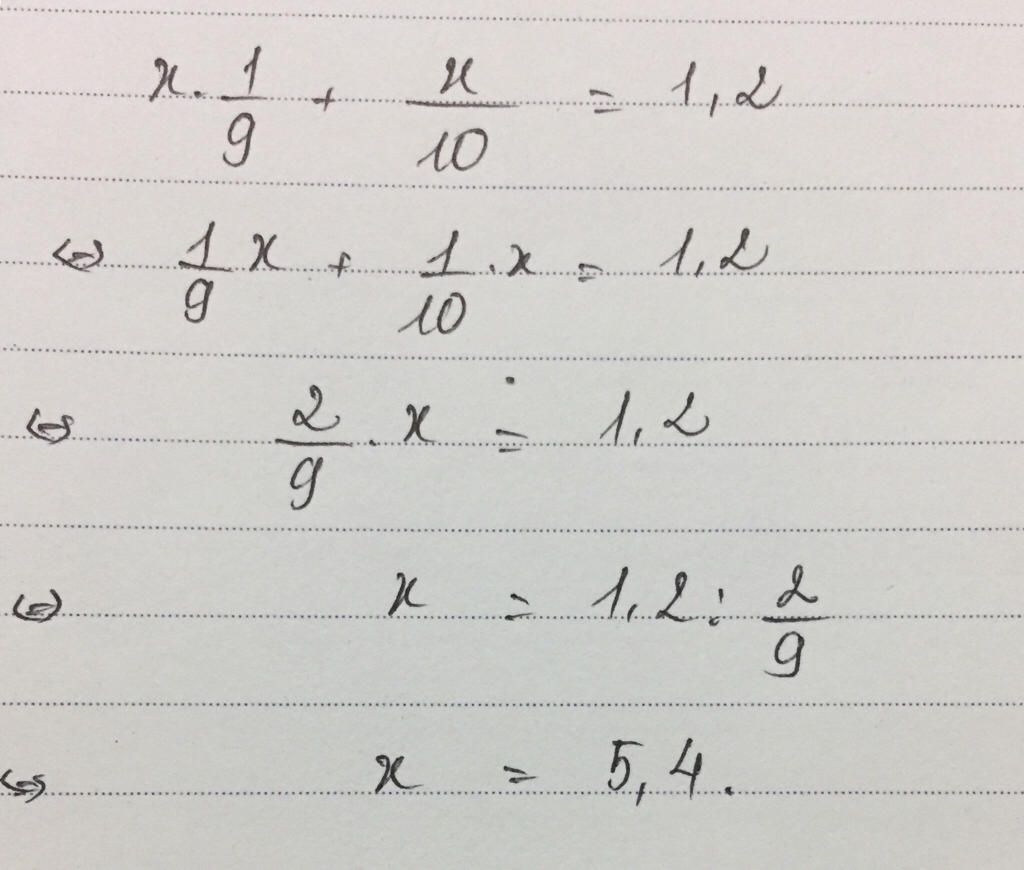 x. 1/9 + x/10 = 1,2
⇔ 1/9 x + 1/10 . x = 1,2
⇔ 2/9 . x = 1,2
⇔ x = 1,2 : 2/9
⇔ x = 5,4.